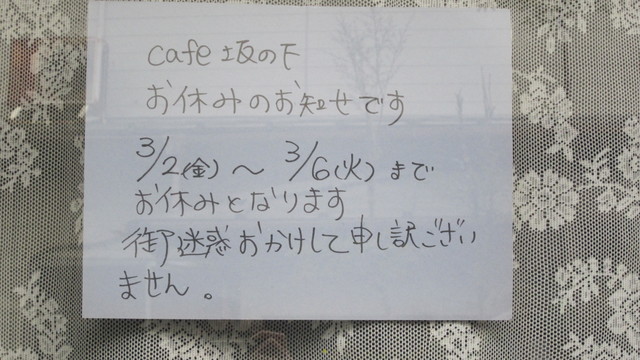 cafe 坂の下
お休みのお知せです
3/2(金)～3/6(火)まで
お休みとなります
御迷惑おかけして申し訳ござい
ません。